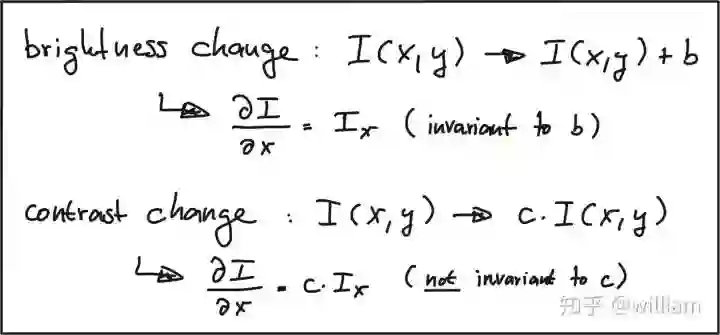 brightness change : I(x,y) → I(x,y) + b
↳ ∂I/∂x = Ix (invariant to b)
contrast change : I(x,y) → c·I(x,y)
↳ ∂I/∂x = c·Ix (not invariant to c)
知乎 @william